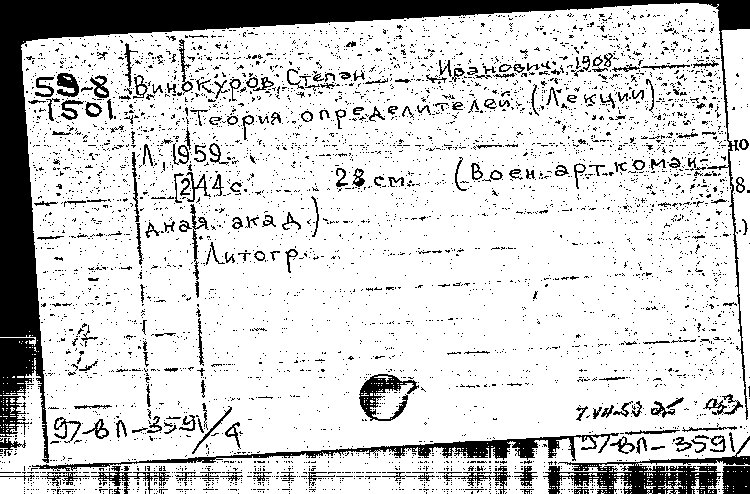 Винокуров, Степан Иванович 1908
1501
Теория определителей (Лекции)
Л, 1959.
[2]44 с. 28 см. (Воен. арт. коман-
дная акад.)
Литогр.
97-ВЛ-3591/4
97-ВЛ-3591/